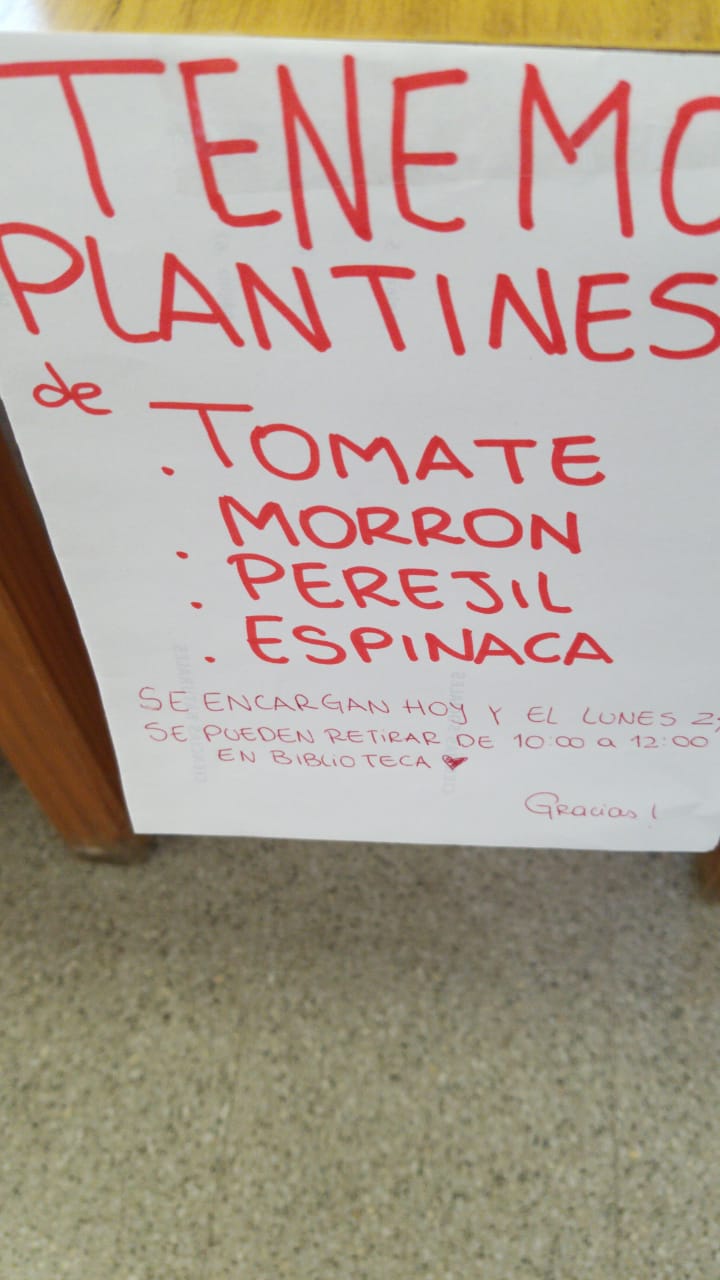 TENEMO
PLANTINES
de
. TOMATE
. MORRON
. PEREJIL
. ESPINACA
SE ENCARGAN HOY Y EL LUNES
SE PUEDEN RETIRAR DE 10:00 a 12:00
EN BIBLIOTECA ♥
Gracias!